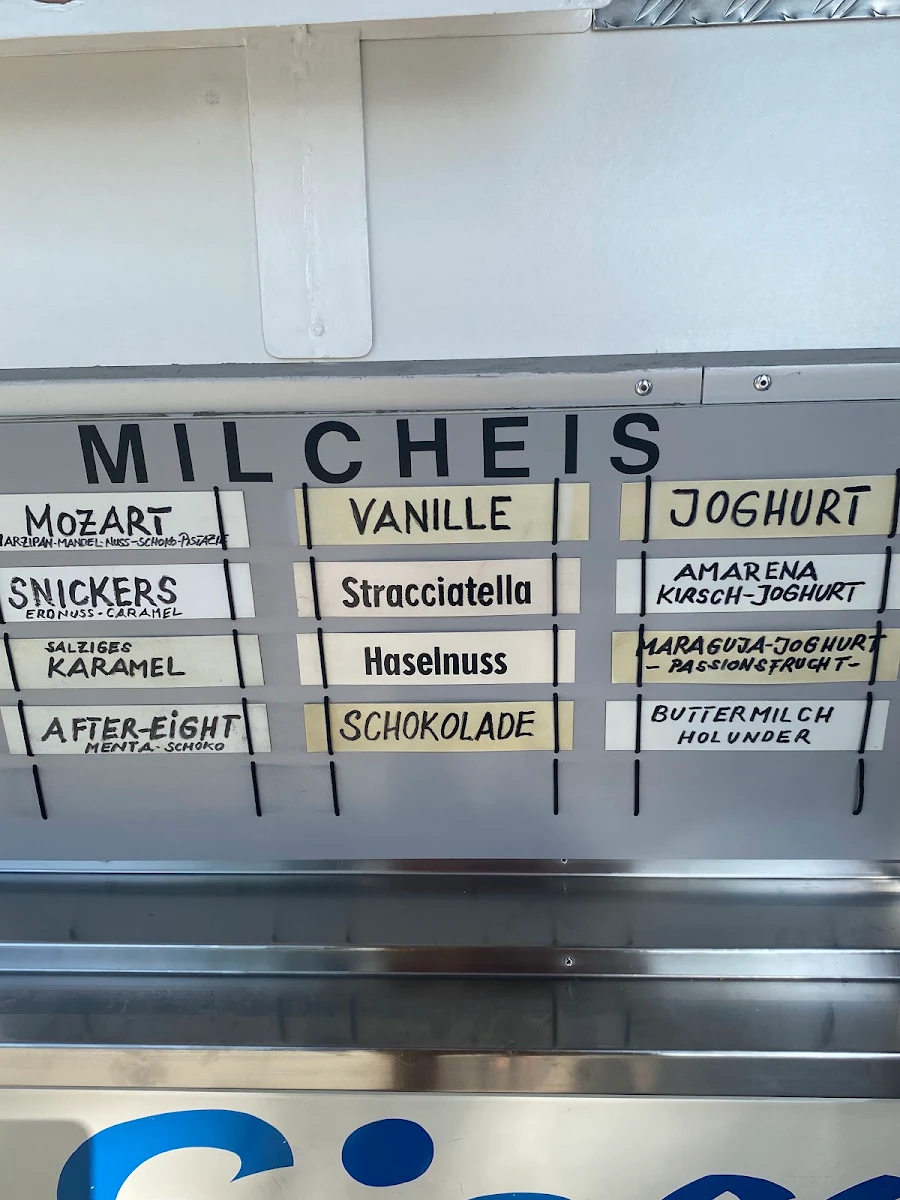 MILCHEIS
MOZART
MARZIPAN-MANDEL-NUSS-SCHOKO-PISTAZIE
SNICKERS
ERDNUSS-CARAMEL
SALZIGES
KARAMEL
AFTER-EiGHT
MENTA-SCHOKO
VANILLE
Stracciatella
Haselnuss
SCHOKOLADE
JOGHURT
AMARENA
KIRSCH-JOGHURT
MARAGUJA-JOGHURT
- PASSIONSFRUCHT-
BUTTERMILCH
HOLUNDER